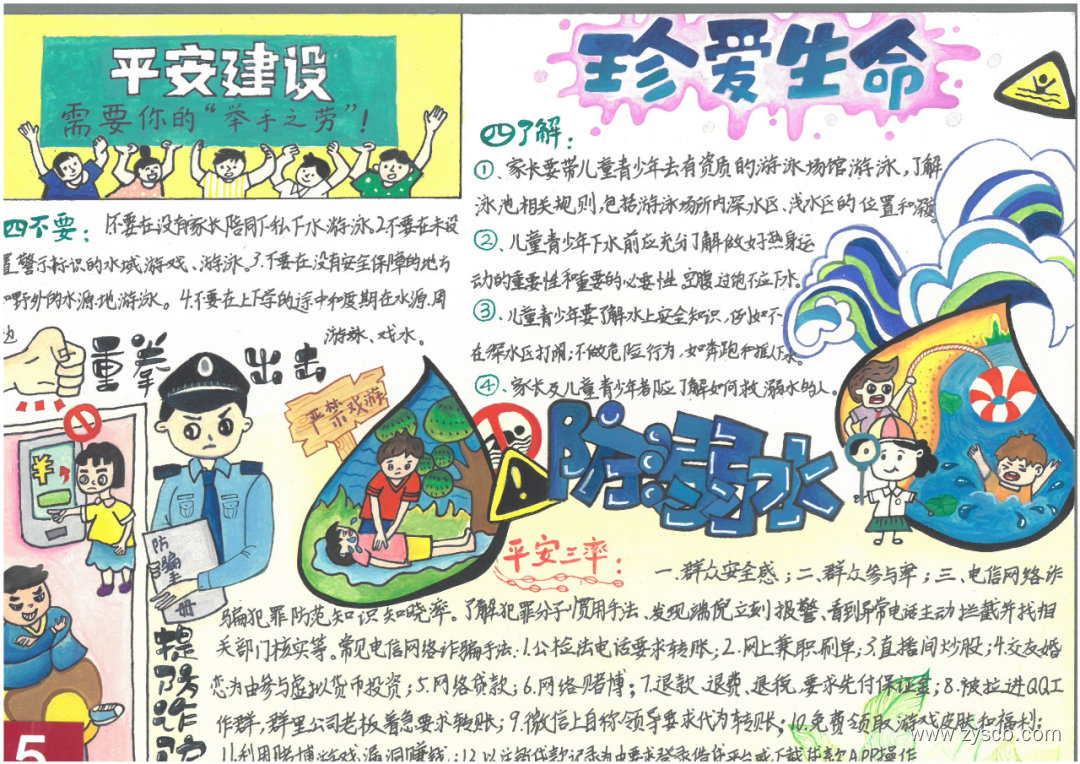 平安建设
需要你的“举手之劳”!
珍爱生命
四了解:
①、家长要带儿童青少年去有资质的游泳场馆游泳,了解
泳池相关规则,包括游泳场所内深水区、浅水区的位置和
②、儿童青少年下水前应充分了解做好热身运
动的重要性和重要的必要性,空腹过饱不应下水。
③、儿童青少年要了解水上安全知识,例如不
在深水区打闹;不做危险行为,如奔跑和推人下水。
④、家长及儿童青少年都应了解如何救溺水的人。
四不要:不要在没有家长陪同下私下水游泳.2.不要在未设
置警示标识的水域游戏、游泳。3.不要在没有安全保障的地方
和野外的水源地游泳。4.不要在上下学的途中和度期在水源周
边
游泳、戏水。
重拳出击
严禁戏游
防溺水
¥
防骗手册
提防诈骗
平安三率:
一、群众安全感;二、群众参与率;三、电信网络诈
骗犯罪防范知识知晓率。了解犯罪分子惯用手法、发现端倪立刻报警、看到异常电话主动拦截并找相
关部门核实等。常见电信网络诈骗手法:1.公检法电话要求转账;2.网上兼职刷单;3直播间炒股;4.交友婚
恋为由参与虚拟货币投资;5.网络贷款;6.网络赌博;7.退款、退费、退税,要求先付保证金;8.被拉进QQ工
作群,群里公司老板着急要求转账;9.微信上自称领导要求代为转账;10.免费领取游戏皮肤和福利;
11.利用赌博游戏漏洞赚钱;12.以注销贷款记录为由要求登录借贷平台或下载贷款APP操作
5
www.zyscb.com